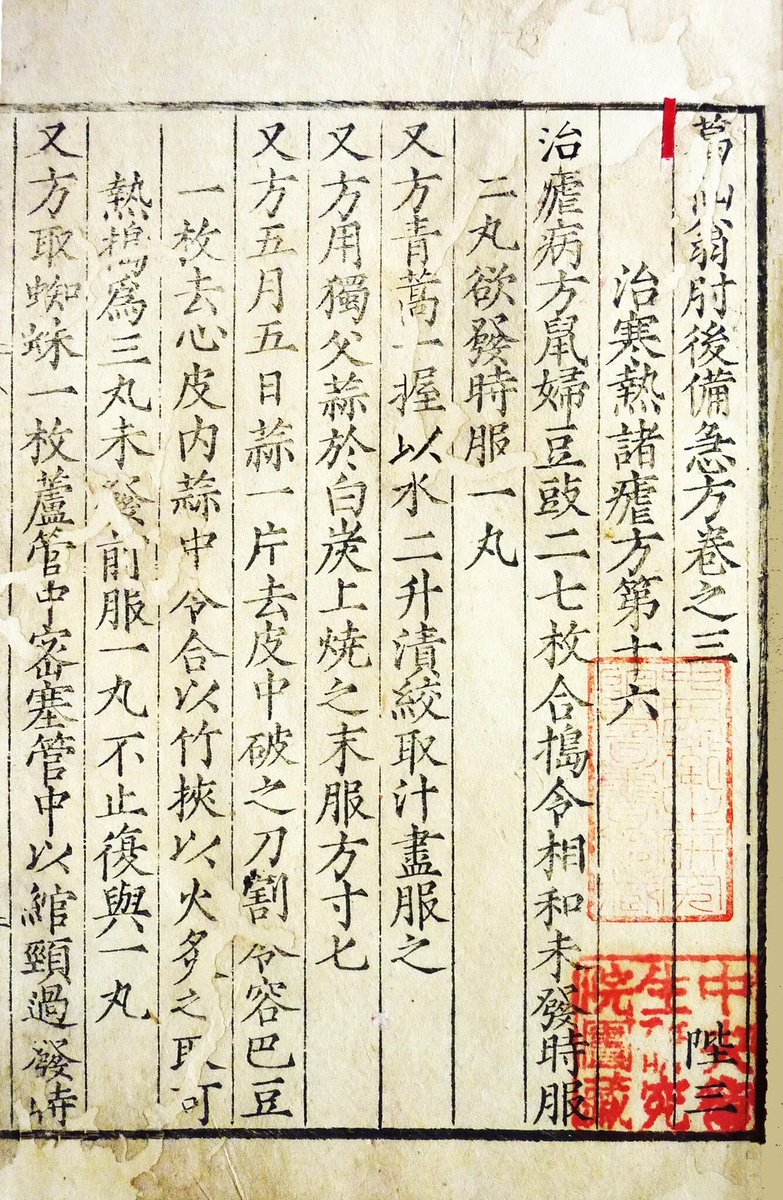 葛仙翁肘後備急方卷之三 陛三
治寒熱諸瘧方第十六
治瘧病方鼠婦豆豉二七枚合搗令相和未發時服
二丸欲發時服一丸
又方青蒿一握以水二升漬絞取汁盡服之
又方用獨父蒜於白炭上燒之末服方寸七
又方五月五日蒜一片去皮中破之刀割令容巴豆
一枚去心皮内蒜中令合以竹挾以火炙之取可
熱搗爲三丸未發前服一丸不止復與一丸
又方取蜘蛛一枚蘆管中密塞管中以綰頸過發時